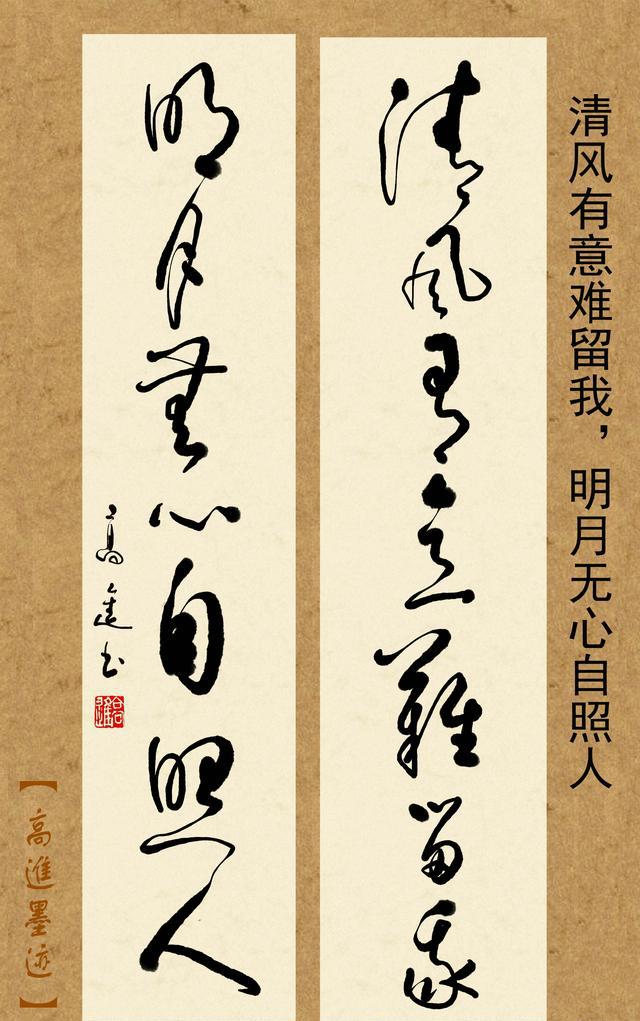 清风有意难留我，明月无心自照人
清風有意難留我
明月無心自照人
高進书
【高進墨迹】